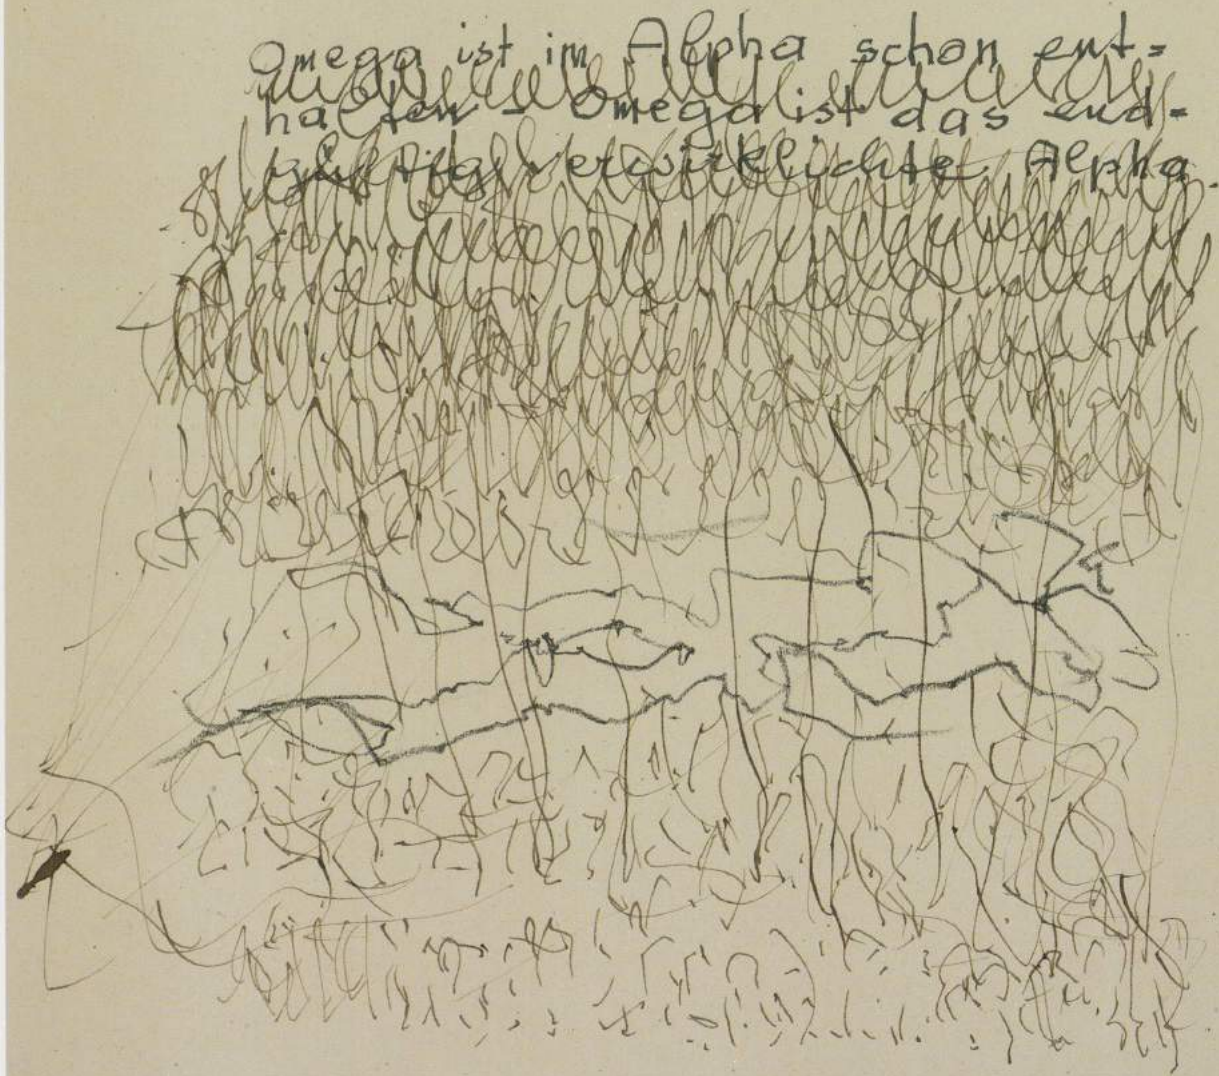 Omega ist im Alpha schon ent=
halten - Omega ist das end=
gültig verwirklichte Alpha.